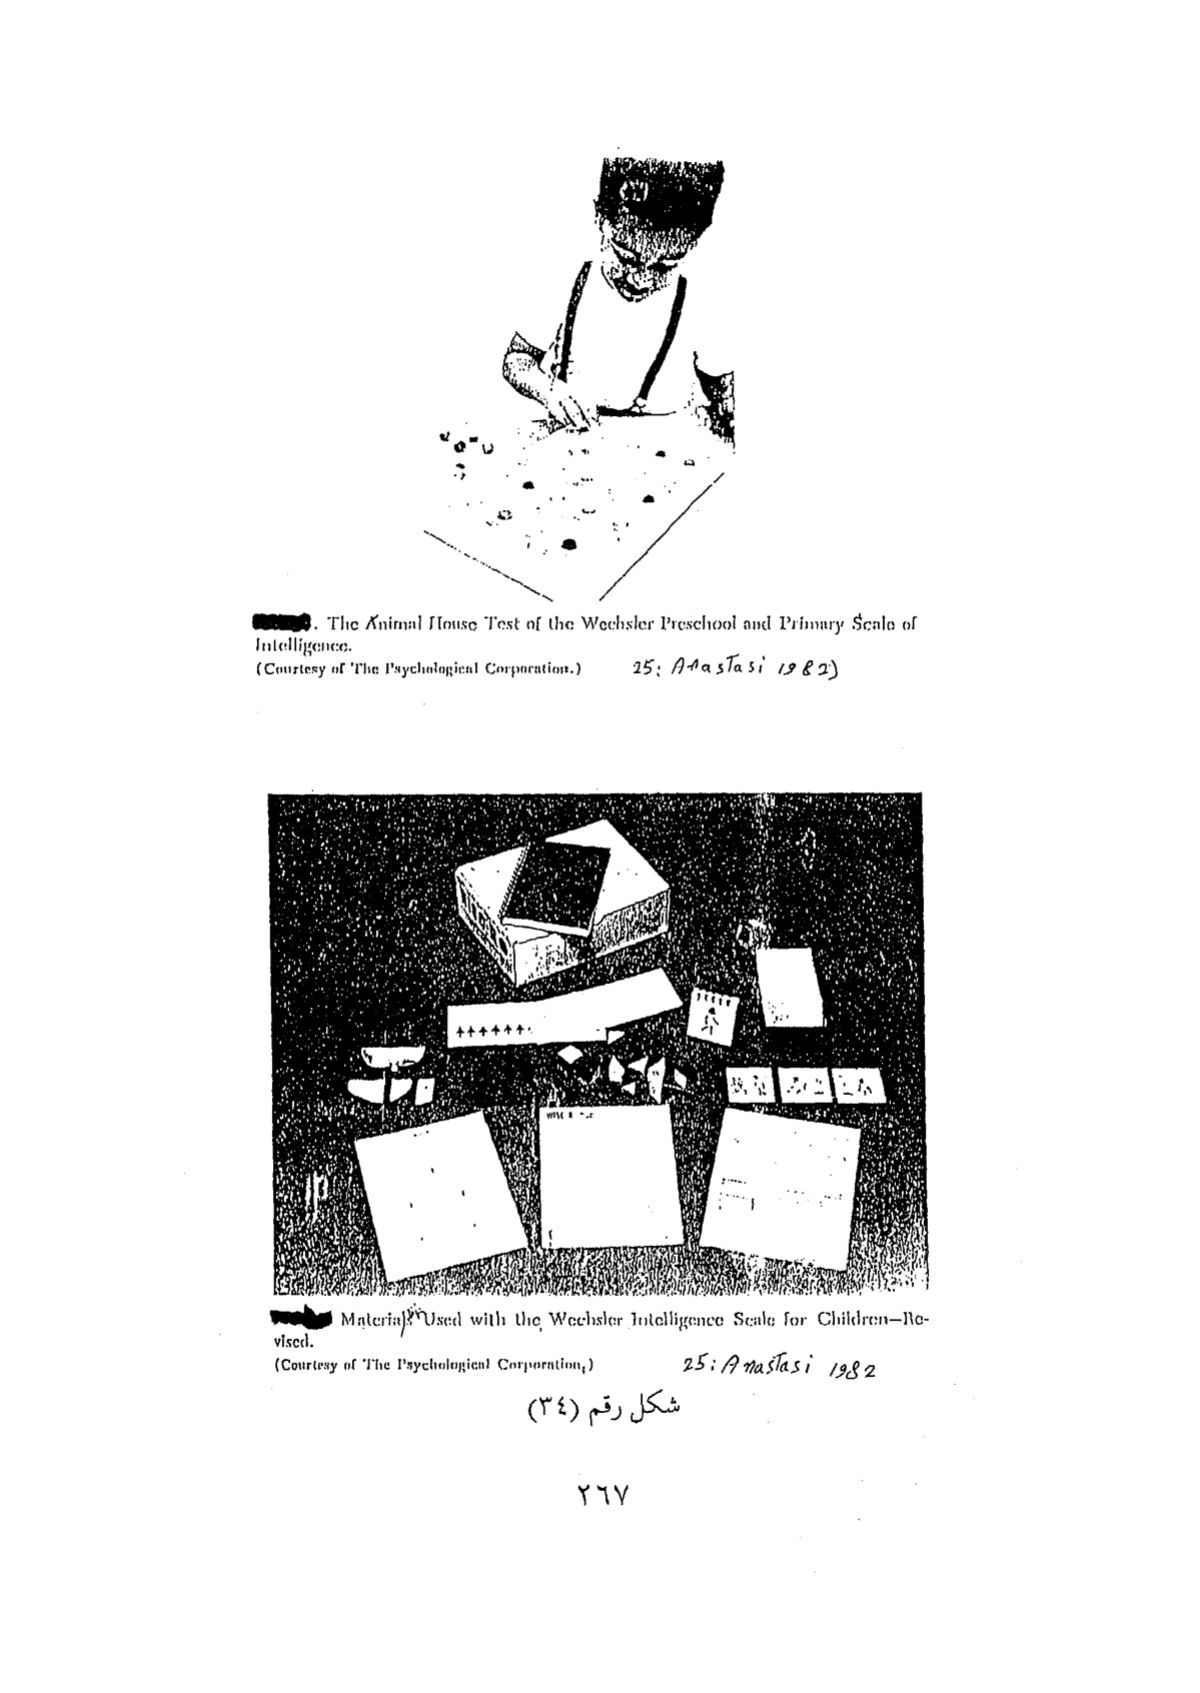 . The Animal House Test of the Wechsler Preschool and Primary Scale of
Intelligence.
(Courtesy of The Psychological Corporation.) 25: Anastasi 1982)
Materials Used with the Wechsler Intelligence Scale for Children—Re-
vised.
(Courtesy of The Psychological Corporation.) 25: Anastasi 1982
شكل رقم (٣٤)
٢٦٧